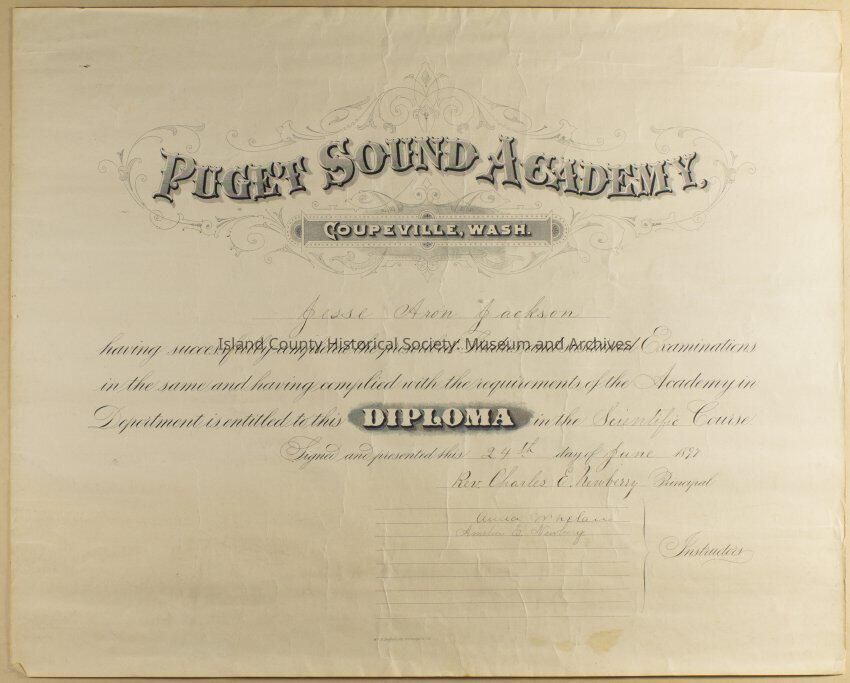 PUGET SOUND ACADEMY,
COUPEVILLE, WASH.
Jesse Aron Jackson
having successfully completed the prescribed Studies and Examinations
Island County Historical Society: Museum and Archives
in the same and having complied with the requirements of the Academy in
Deportment is entitled to this DIPLOMA in the Scientific Course
Signed and presented this 24th day of June 1897
Rev. Charles E. Newberry Principal
Anna Whelan
Amelia E. Newberry
Instructors